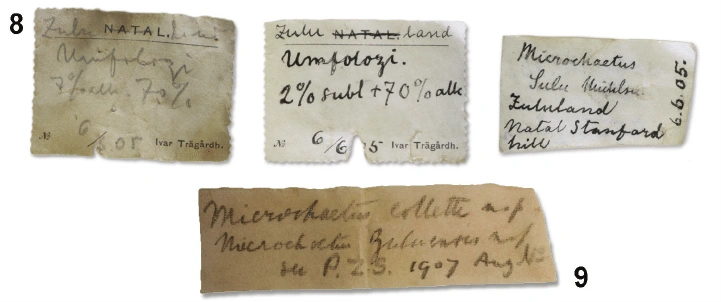 8
Zulu NATAL. land
Umfolozi
7% alk. 70%
№ 6/5 05 Ivar Trägårdh.
Zulu NATAL. land
Umfolozi.
2% subl + 70% alk
№ 6/6 5 Ivar Trägårdh.
Microchaetus
Sulu Michlsn.
Zululand
Natal Stanford
hill
6.6.05.
Microchaetus collette n sp.
Microchaetus Zuluensis n sp
see P.Z.S. 1907 Aug
9